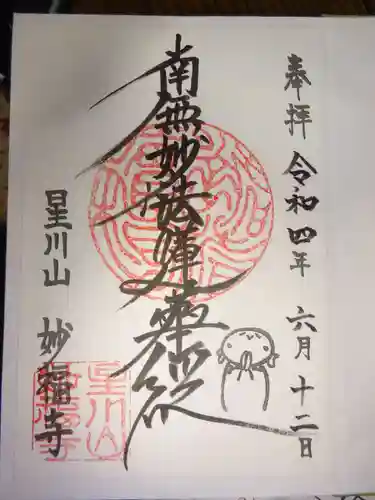 奉拝 令和四年 六月十二日
南無妙法蓮華経
星川山 妙福寺